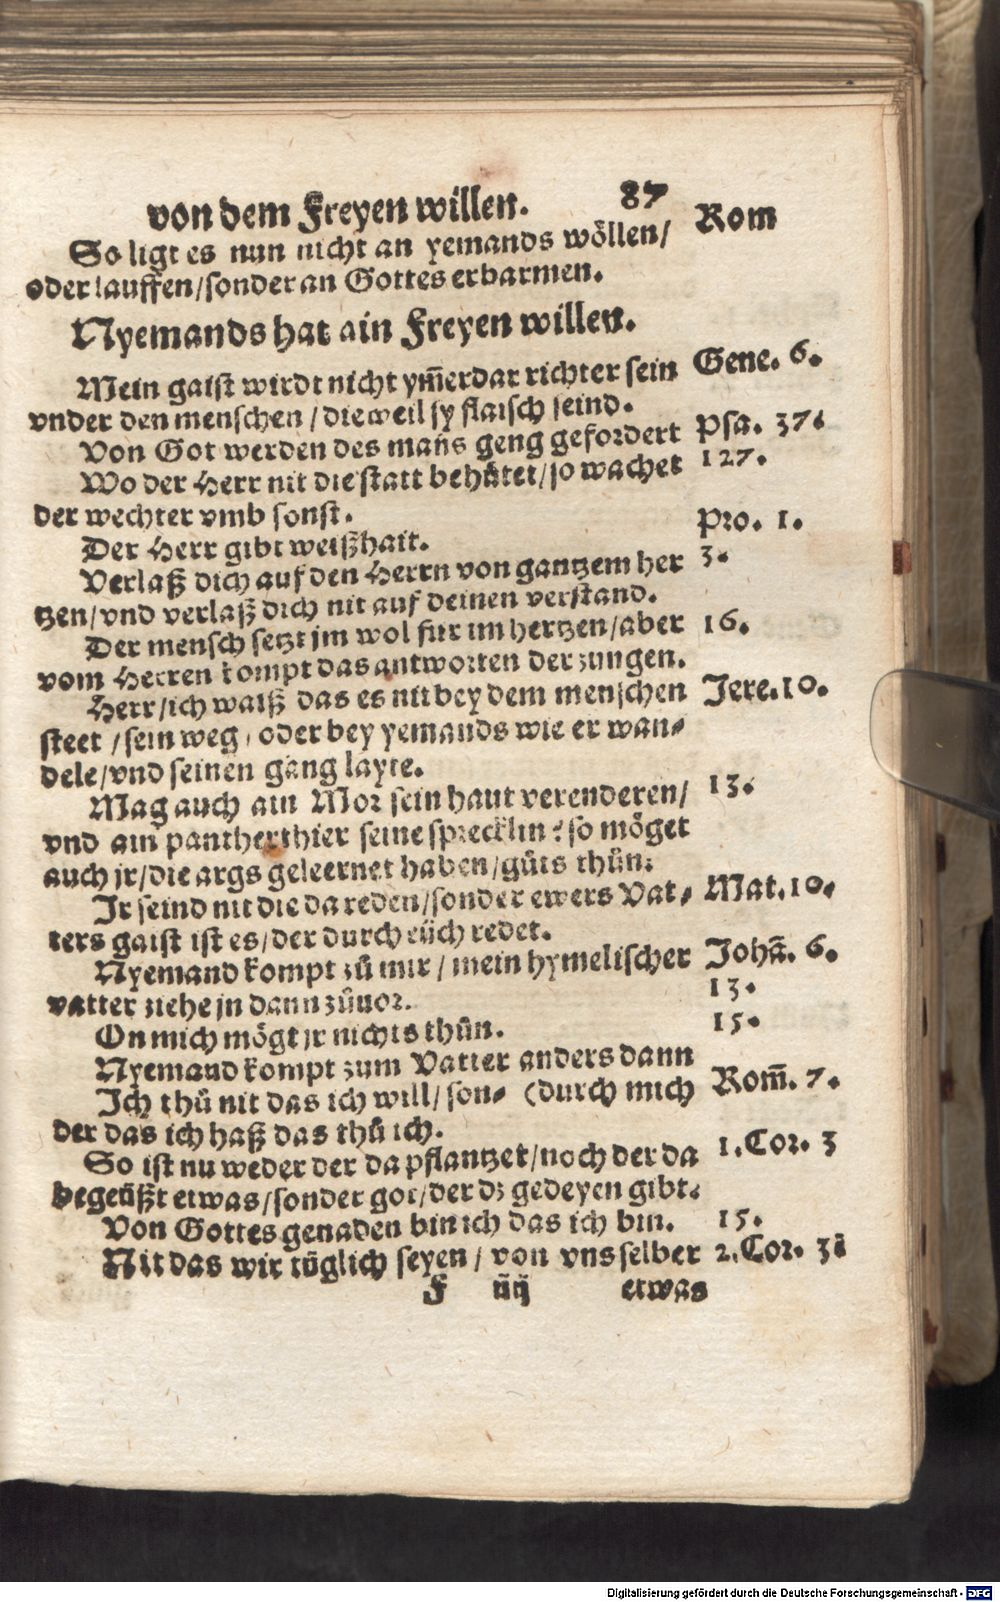 von dem Freyen willen. 87
So ligt es nun nicht an yemands wöllen/ Rom
oder lauffen/sonder an Gottes erbarmen.
Nyemands hat ain Freyen willen.
Mein gaist wirdt nicht ym̃erdar richter sein Gene. 6.
vnder den menschen / dieweil sy flaisch seind.
Von Got werden des mañs geng gefordert Psa. 37.
Wo der Herr nit die statt behůtet/so wachet 127.
der wechter vmb sonst.
Der Herr gibt weißhait. Pro. 1.
Verlaß dich auf den Herrn von gantzem her 3.
tzen/vnd verlaß dich nit auf deinen verstand.
Der mensch setzt jm wol für im hertzen/aber 16.
vom Herren kompt das antworten der zungen.
Herr/ich waiß das es nit bey dem menschen Jere.10.
steet / sein weg, oder bey yemands wie er wan⸗
dele/vnd seinen gang layte.
Mag auch ain Mor sein haut verenderen/ 13.
vnd ain pantherthier seine sprecklin? so möget
auch jr/die args geleernet haben/gůts thůn.
Ir seind nit die da reden/sonder ewers Vat⸗ Mat.10.
ters gaist ist es/der durch eüch redet.
Nyemand kompt zů mir / mein hymelischer Johã. 6.
vatter ziehe jn dann zůuor. 13.
On mich mögt jr nichts thůn. 15.
Nyemand kompt zum Vatter anders dann
Ich thů nit das ich will/son⸗ (durch mich Rom̃. 7.
der das ich haß das thů ich.
So ist nu weder der da pflantzet/noch der da 1.Cor. 3
begeüßt etwas/sonder got/der dz gedeyen gibt.
Von Gottes genaden bin ich das ich bin. 15.
Nit das wir tüglich seyen / von vns selber 2.Cor. 3
F iiij etwas
Digitalisierung gefördert durch die Deutsche Forschungsgemeinschaft - DFG